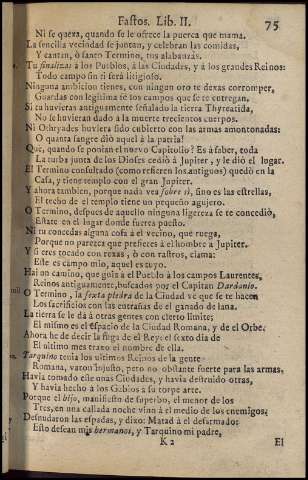 Fastos. Lib. II. 75
Ni se quexa, quando se le ofrece la puerca que mama.
La sencilla vecindad se juntan, y celebran las comidas,
Y cantan, ò santo Termino, tus alabanzas.
Tu finalizas à los Pueblos, à las Ciudades, y à los grandes Reinos:
Todo campo sin tì serà litigioso.
Ninguna ambicion tienes, con ningun oro te dexas corromper,
Guardas con legitima fè los campos que se te entregan.
Si tu huvieras antiguamente señalado la tierra Thyreatida,
No se huvieran dado à la muerte trecientos cuerpos.
Ni Othryades huviera sido cubierto con las armas amontonadas:
O quanta sangre diò aquel à la patria!
Que, quando se ponian el nuevo Capitolio? Es à saber, toda
La turba junta de los Dioses cediò à Jupiter, y le diò el lugar.
El Termino consultado (como refieren los antiguos) quedò en la
Casa, y tiene templo con el gran Jupiter.
Y ahora tambien, porque nada vea sobre sì, sino es las estrellas,
El techo de el templo tiene un pequeño agujero.
O Termino, despues de aquello ninguna ligereza se te concediò,
Estate en el lugar donde fueres puesto.
Ni tu concedas alguna cosa à el vecino, que ruega,
Porque no parezca que prefieres à el hombre à Jupiter.
Y si eres tocado con rexas, ò con rastros, clama:
Este es campo mio, aquel es tuyo.
Hai un camino, que guìa à el Pueblo à los campos Laurentes,
Reinos antiguamente, buscados por el Capitan Dardanio.
O Termino, la sexta piedra de la Ciudad ve que se te hacen
Los sacrificios con las entrañas de el ganado de lana.
La tierra se le dà à otras gentes con cierto limite;
El mismo es el espacio de la Ciudad Romana, y de el Orbe.
Ahora he de decir la fuga de el Rey: el sexto dia de
El ultimo mes traxo el nombre de ella.
Tarquino tenia los ultimos Reinos de la gente
Romana, varon injusto, pero no obstante fuerte para las armas,
Havia tomado este unas Ciudades, y havia destruido otras,
Y havia hecho à los Gabios à su torpe arte.
Porque el hijo, manifiesto de superbo, el menor de los
Tres, en una callada noche vino à el medio de los enemigos.
Desnudaron las espadas, y dixo: Matad à el desarmado:
Esto desean mis hermanos, y Tarquino mi padre,
K 2 El